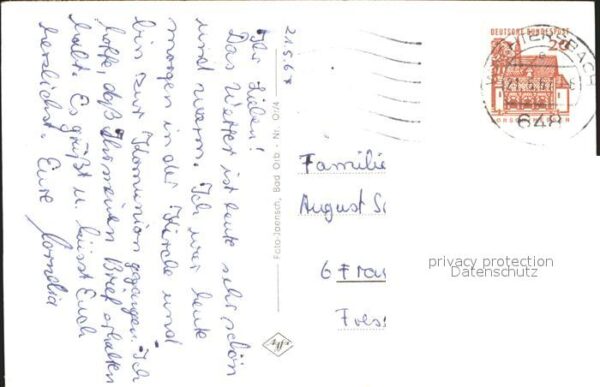 21.5.67
Ihr Lieben!
Das Wetter ist heute sehr schön
und warm. Ich war heute
morgen in der Kirche und
bin zur Kommunion gegangen. Ich
hoffe, daß Ihr meinen Brief erhalten
habt. Es grüßt u. küsst Euch
herzlichst. Eure Cornelia
Foto-Jaensch, Bad Orb - Nr. O/4
DEUTSCHE BUNDESPOST
20
WÄCHTERSBACH
21.5.67
648
Familie
August
6
privacy protection
Datenschutz